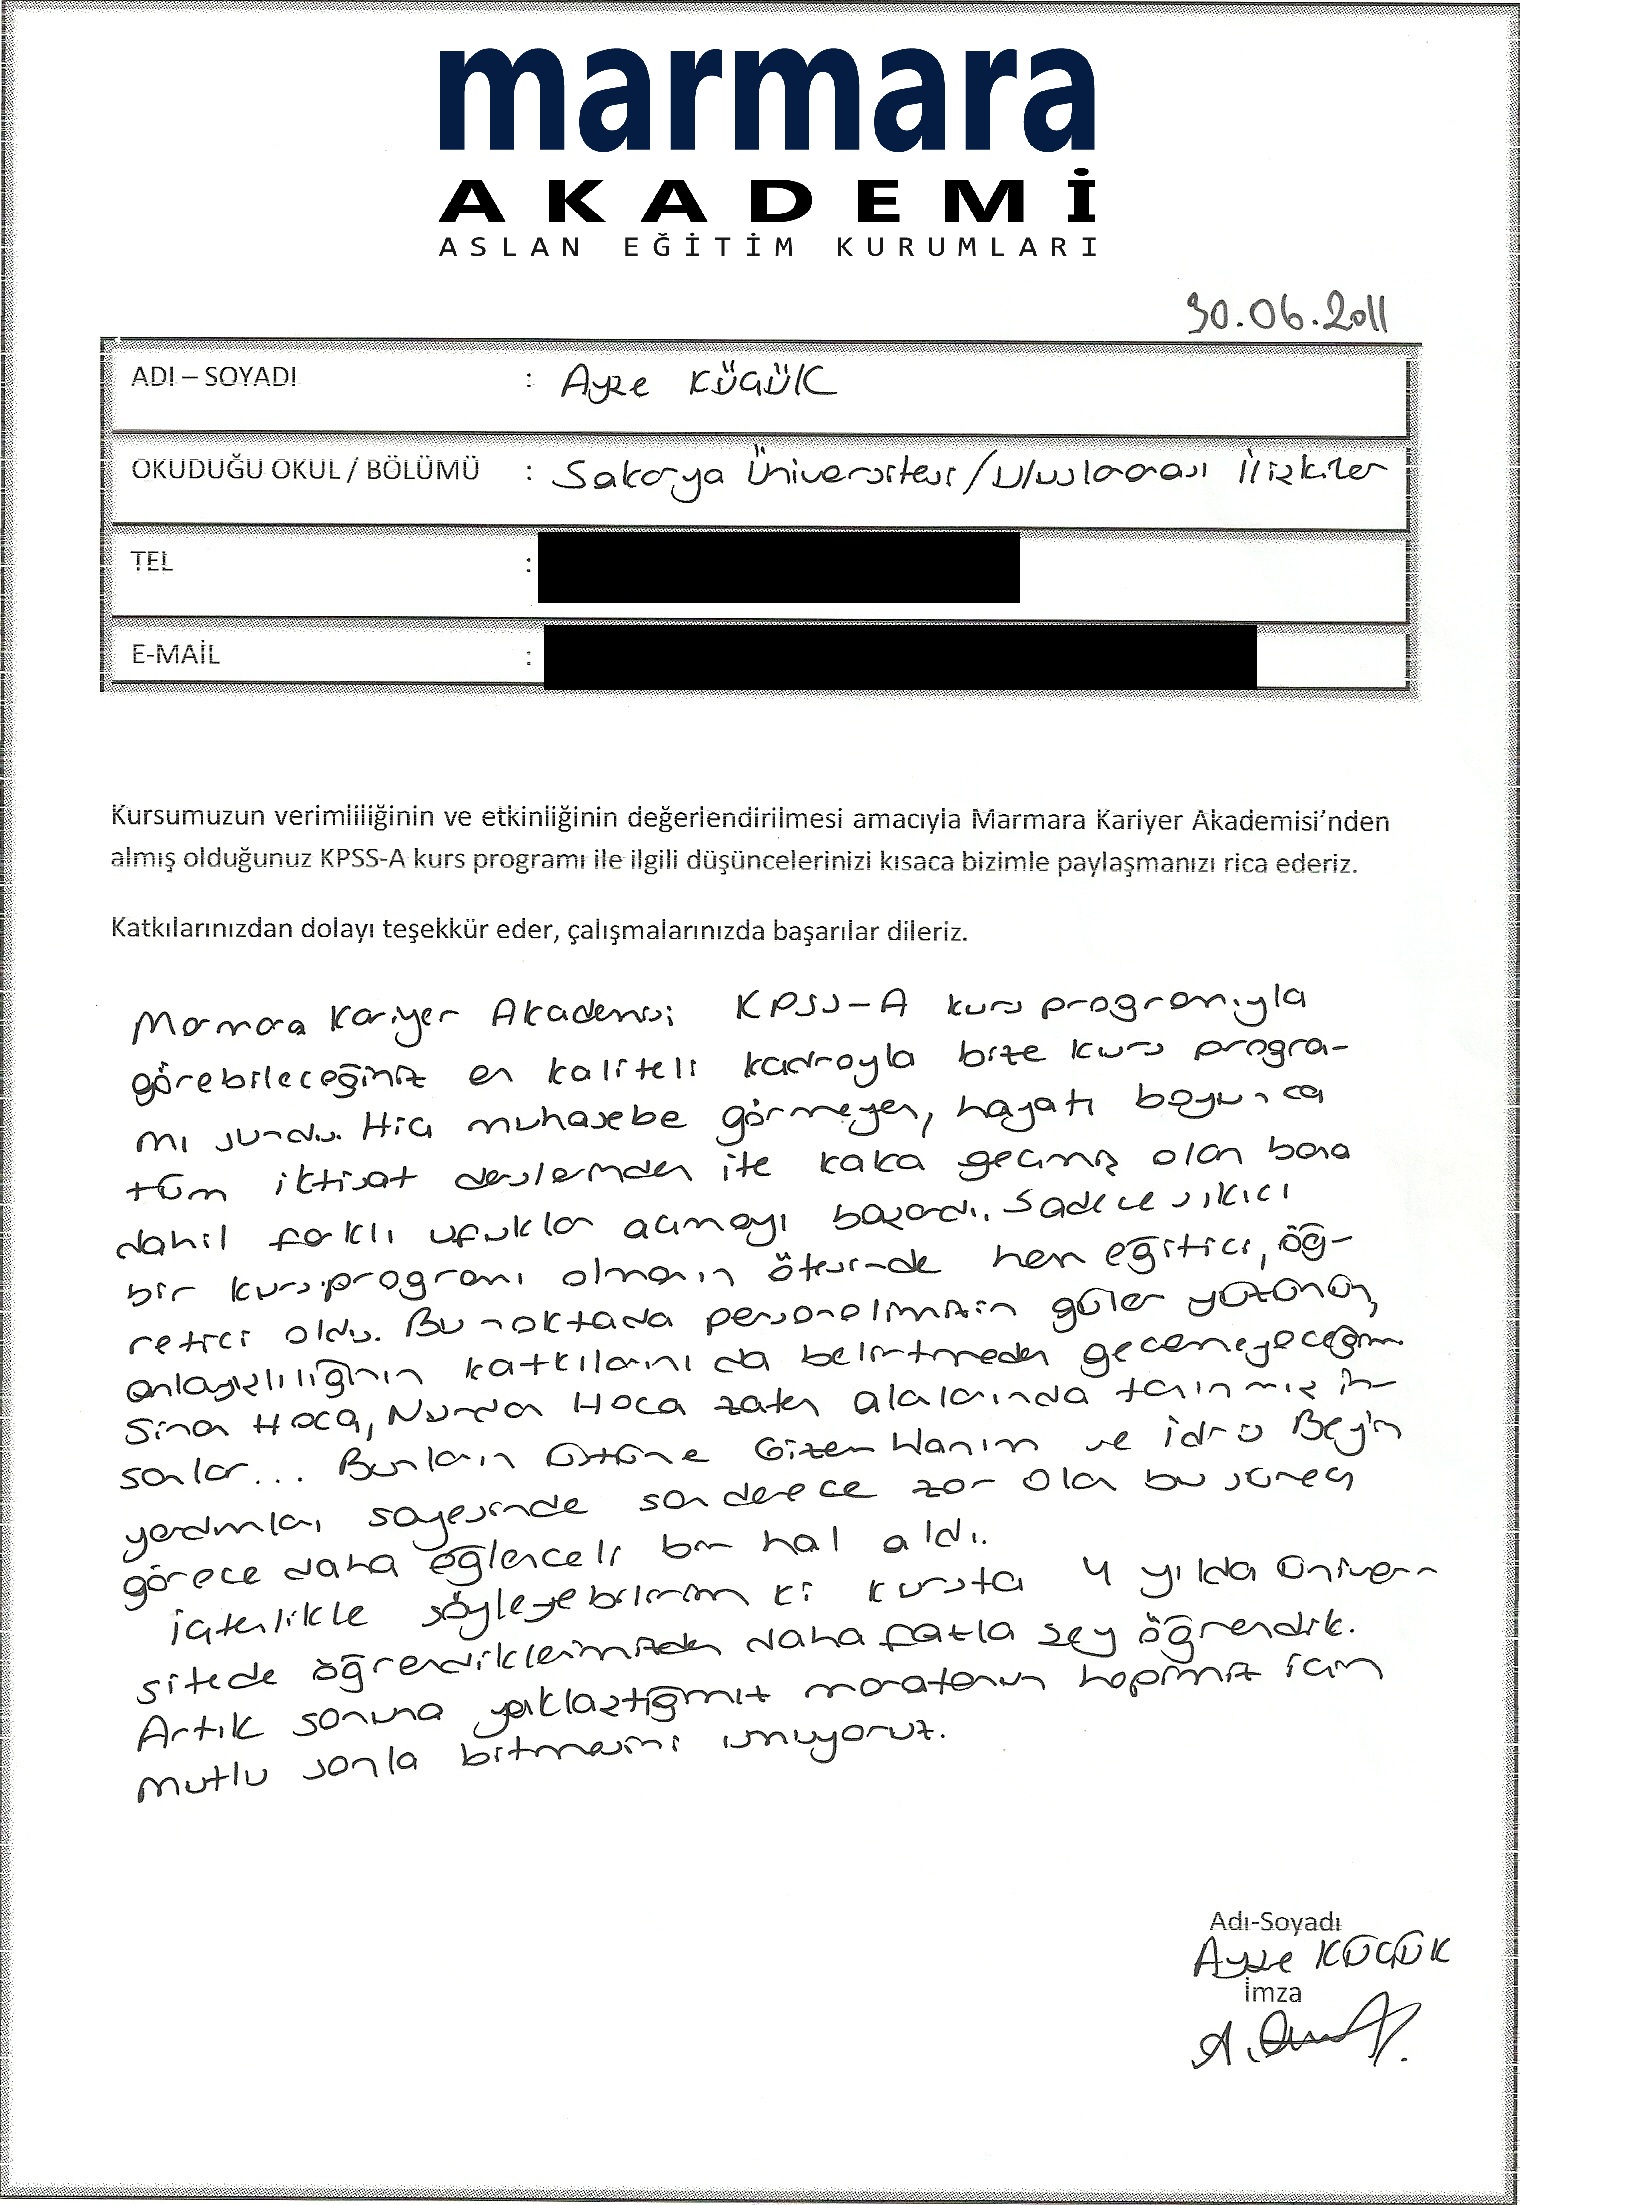 marmara
AKADEMİ
ASLAN EĞİTİM KURUMLARI
30.06.2011
ADI – SOYADI : Ayşe KÜÇÜK
OKUDUĞU OKUL / BÖLÜMÜ : Sakarya Üniversitesi/Uluslararası İlişkiler
TEL :
E-MAİL :
Kursumuzun verimliliğinin ve etkinliğinin değerlendirilmesi amacıyla Marmara Kariyer Akademisi’nden
almış olduğunuz KPSS-A kurs programı ile ilgili düşüncelerinizi kısaca bizimle paylaşmanızı rica ederiz.
Katkılarınızdan dolayı teşekkür eder, çalışmalarınızda başarılar dileriz.
Marmara Kariyer Akademisi KPSS-A kurs programıyla
görebileceğiniz en kaliteli kadroyla bize kurs progra-
mı sundu. Hiç muhasebe görmeyen, hayatı boyunca
tüm iktisat derslerinden ite kaka geçmiş olan bana
dahil farklı ufuklar açmayı başardı. Sadece sıkıcı
bir kurs programı olmanın ötesinde hem eğitici, öğ-
retici oldu. Bu noktada personelimizin güler yüzünün,
anlayışlılığının katkılarını da belirtmeden geçemeyeceğim.
Sinan Hoca, Nurdan Hoca zaten alalarında tanınmış in-
sanlar... Bunların üstüne Gizem Hanım ve İdris Bey'in
yardımları sayesinde son derece zor olan bu süreç
görece daha eğlenceli bir hal aldı.
içtenlikle söyleyebilirim ki kursta 4 yılda üniver-
sitede öğrendiklerimizden daha fazla şey öğrendik.
Artık sonuna yaklaştığımız maratonun hepimiz için
mutlu sonla bitmesini umuyoruz.
Adı-Soyadı
Ayşe KÜÇÜK
İmza